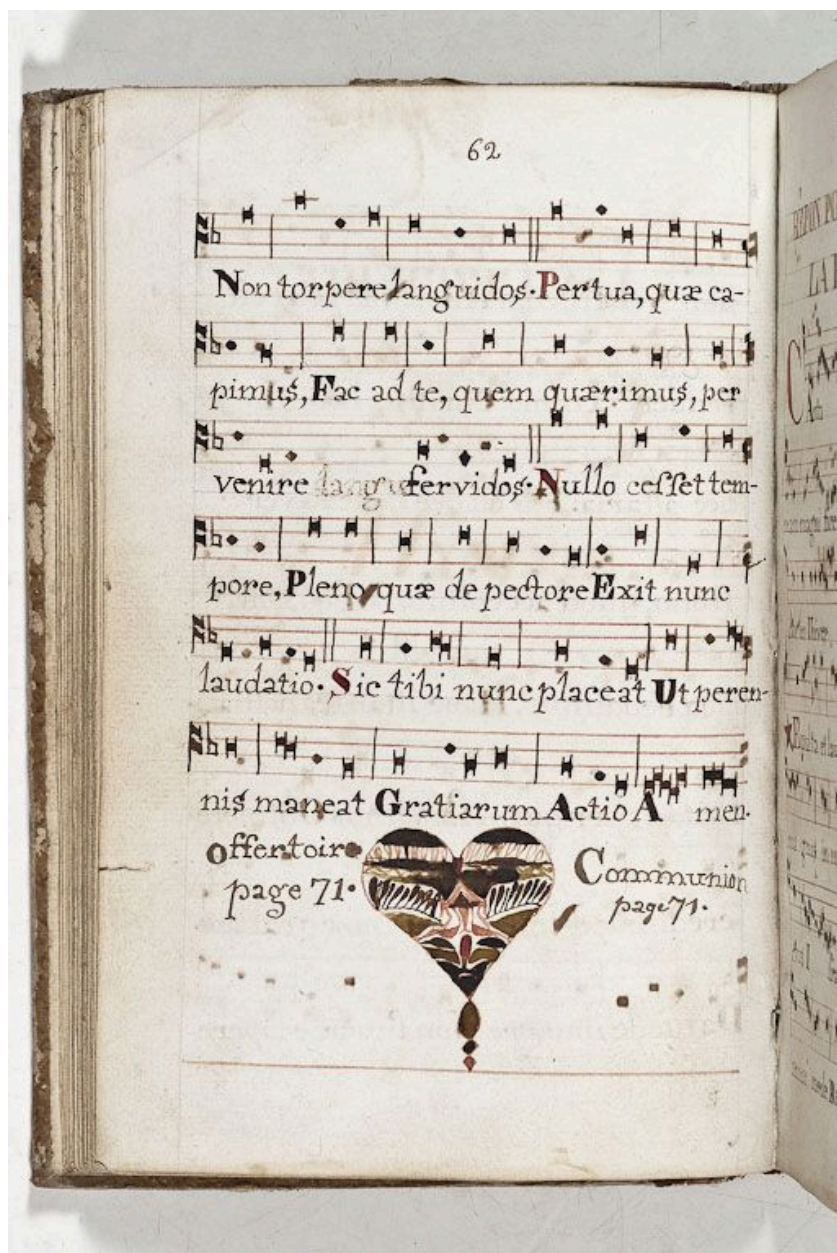 62
Non torpere languidos. Per tua, quæ ca-
pimus, Fac ad te, quem quærimus, per
venire fervidos. Nullo cesset tem-
pore, Pleno quæ de pectore Exit nunc
laudatio. Sic tibi nunc placeat Ut peren-
nis maneat Gratiarum Actio A men.
offertoire
page 71.
Communion
page 71.